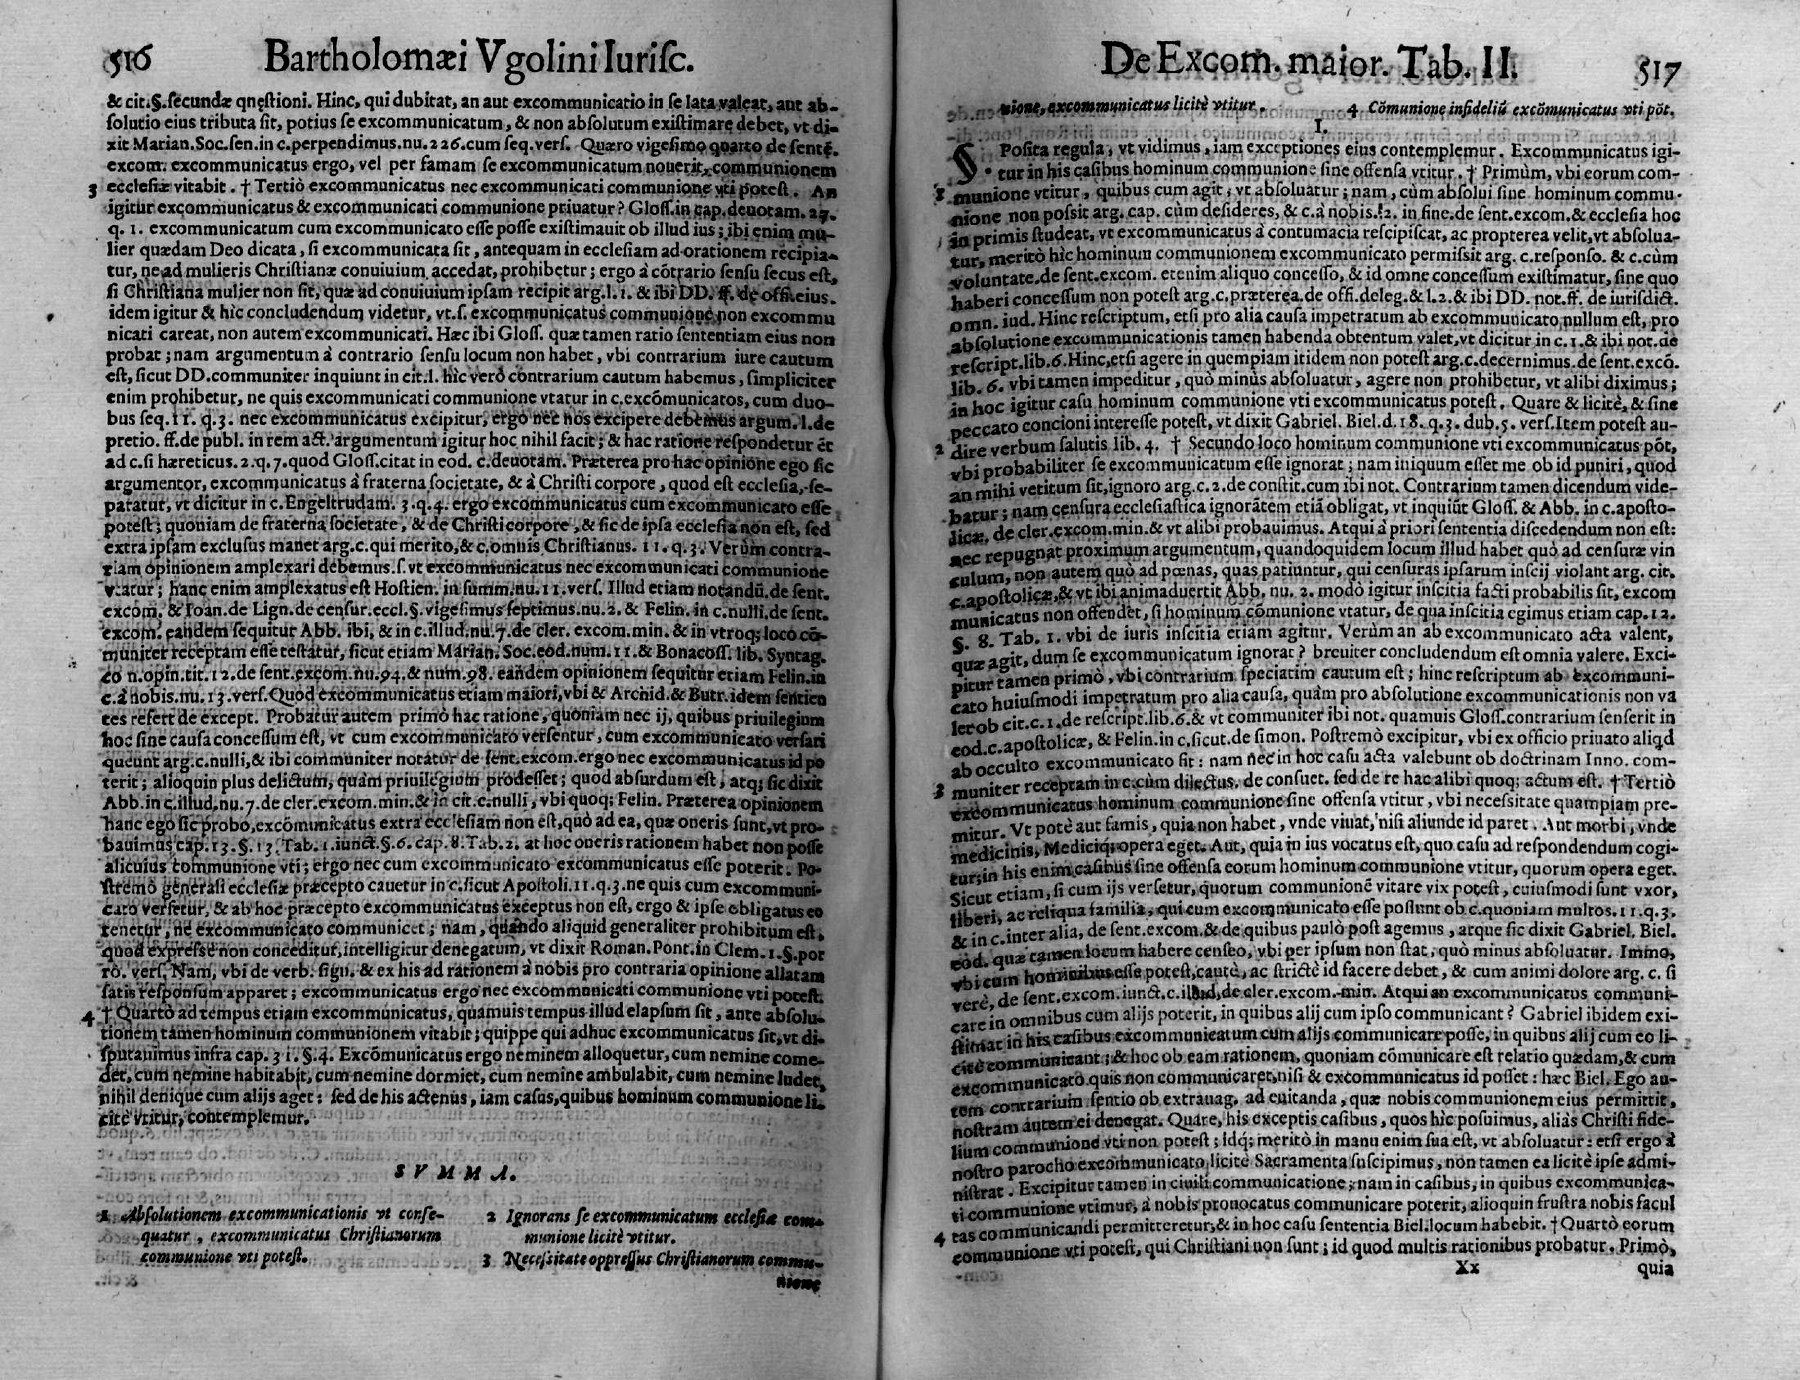 516 Bartholomæi Vgolini Iurisc.
& cit.§.secundæ qnęstioni. Hinc, qui dubitat, an aut excommunicatio in se lata valeat, aut ab-
solutio eius tributa sit, potius se excommunicatum, & non absolutum existimare debet, vt di-
xit Marian.Soc.sen.in c.perpendimus.nu.226.cum seq.vers. Quæro vigesimo quarto de sentē.
excom. excommunicatus ergo, vel per famam se excommunicatum nouerit, communionem
3 ecclesiæ vitabit. † Tertiò excommunicatus nec excommunicati communione vti potest. An
igitur excommunicatus & excommunicati communione priuatur? Gloss.in cap.deuotam. 27.
q. 1. excommunicatum cum excommunicato esse posse existimauit ob illud ius; ibi enim mu-
lier quædam Deo dicata, si excommunicata sit, antequam in ecclesiam ad orationem recipia-
tur, ne ad mulieris Christianæ conuiuium accedat, prohibetur; ergo à cōtrario sensu secus est,
si Christiana mulier non sit, quæ ad conuiuium ipsam recipit arg.l.1. & ibi DD. ff. de offi.eius.
idem igitur & hic concludendum videtur, vt.s. excommunicatus communione non excommu
nicati careat, non autem excommunicati. Hæc ibi Gloss. quæ tamen ratio sententiam eius non
probat; nam argumentum à contrario sensu locum non habet, vbi contrarium iure cautum
est, sicut DD.communiter inquiunt in cit.l. hic verò contrarium cautum habemus, simpliciter
enim prohibetur, ne quis excommunicati communione vtatur in c.excōmunicatos, cum duo-
bus seq.11. q.3. nec excommunicatus excipitur, ergo nec nos excipere debemus argum.l.de
pretio. ff.de publ. in rem act. argumentum igitur hoc nihil facit; & hac ratione respondetur ēt
ad c.si hæreticus.2.q.7.quod Gloss.citat in eod. c.deuotam. Præterea pro hac opinione ego sic
argumentor, excommunicatus à fraterna societate, & à Christi corpore, quod est ecclesia, se-
paratur, vt dicitur in c.Engeltrudam. 3.q.4. ergo excommunicatus cum excommunicato esse
potest; quoniam de fraterna societate, & de Christi corpore, & sic de ipsa ecclesia non est, sed
extra ipsam exclusus manet arg.c.qui merito,& c.omnis Christianus. 11.q.3. Verùm contra-
riam opinionem amplexari debemus.s.vt excommunicatus nec excommunicati communione
vtatur; hanc enim amplexatus est Hostien. in summ.nu.11.vers. Illud etiam notandū.de sent.
excom. & Ioan.de Lign.de censur.eccl.§.vigesimus septimus.nu.2. & Felin. in c.nulli.de sent.
excom. eandem sequitur Abb. ibi, & in c.illud.nu.7.de cler. excom.min. & in vtroq; loco cō-
muniter receptam esse testatur, sicut etiam Marian. Soc.eod.num.11.& Bonacoss. lib. Syntag.
co n.opin.tit.12.de sent.excom.nu.94.& num.98. eandem opinionem sequitur etiam Felin.in
c.à nobis.nu.13.vers.Quod excommunicatus etiam maiori, vbi & Archid.& Butr.idem sentien
tes refert de except. Probatur autem primò hac ratione, quoniam nec ij, quibus priuilegium
hoc sine causa concessum est, vt cum excommunicato versentur, cum excommunicato versari
queunt arg.c.nulli,& ibi communiter notatur de sent.excom.ergo nec excommunicatus id po
terit; alioquin plus delictum, quàm priuilegium prodesset; quod absurdum est, atq; sic dixit
Abb.in c.illud.nu.7.de cler.excom.min.& in cit.c.nulli, vbi quoq; Felin. Præterea opinionem
hanc ego sic probo,excōmunicatus extra ecclesiam non est,quò ad ea, quæ oneris sunt,vt pro-
bauimus cap.13.§.13. Tab.1.iunct.§.6. cap.8.Tab.2. at hoc oneris rationem habet non posse
alicuius communione vti; ergo nec cum excommunicato excommunicatus esse poterit. Po-
stremò generali ecclesiæ præcepto cauetur in c.sicut Apostoli.11.q.3.ne quis cum excommuni-
cato versetur, & ab hoc præcepto excommunicatus exceptus non est, ergo & ipse obligatus eo
tenetur, ne excommunicato communicet; nam, quando aliquid generaliter prohibitum est,
quod expresse non conceditur, intelligitur denegatum, vt dixit Roman.Pont.in Clem.1.§.por
rò. vers. Nam, vbi de verb. sign. & ex his ad rationem à nobis pro contraria opinione allatam
satis responsum apparet; excommunicatus ergo nec excommunicati communione vti potest.
4 † Quartò ad tempus etiam excommunicatus, quamuis tempus illud elapsum sit, ante absolu-
tionem tamen hominum communionem vitabit; quippe qui adhuc excommunicatus sit,vt di-
sputauimus infra cap. 31. §.4. Excōmunicatus ergo neminem alloquetur, cum nemine come-
det, cum nemine habitabit, cum nemine dormiet, cum nemine ambulabit, cum nemine ludet,
nihil denique cum alijs aget: sed de his actenus, iam casus,quibus hominum communione li-
citè vtitur, contemplemur.
SVMMA.
1 Absolutionem excommunicationis vt conse-
quatur, excommunicatus Christianorum
communione vti potest.
2 Ignorans se excommunicatum ecclesiæ com-
munione licitè vtitur.
3 Necessitate oppressus Christianorum commu-
nione
De Excom. maior. Tab. II. 517
nione, excommunicatus licitè vtitur.
4 Cōmunione infideliū excōmunicatus vti pōt.
I.
§. Posita regula, vt vidimus, iam exceptiones eius contemplemur. Excommunicatus igi-
tur in his casibus hominum communione sine offensa vtitur. † Primùm, vbi eorum com-
1 munione vtitur, quibus cum agit, vt absoluatur; nam, cùm absolui sine hominum commu-
nione non possit arg. cap. cùm desideres, & c.à nobis.!2. in fine.de sent.excom.& ecclesia hoc
in primis studeat, vt excommunicatus à contumacia resipiscat, ac propterea velit,vt absolua-
tur, meritò hîc hominum communionem excommunicato permissit arg. c.responso. & c.cùm
voluntate.de sent.excom. etenim aliquo concesso, & id omne concessum existimatur, sine quo
haberi concessum non potest arg.c.præterea.de offi.deleg.& l.2.& ibi DD. not.ff. de iurisdict.
omn. iud. Hinc rescriptum, etsi pro alia causa impetratum ab excommunicato nullum est, pro
absolutione excommunicationis tamen habenda obtentum valet,vt dicitur in c.1.& ibi not.de
rescript.lib.6.Hinc,etsi agere in quempiam itidem non potest arg.c.decernimus.de sent.excō.
lib. 6. vbi tamen impeditur, quò minùs absoluatur, agere non prohibetur, vt alibi diximus;
in hoc igitur casu hominum communione vti excommunicatus potest. Quare & licitè, & sine
peccato concioni interesse potest, vt dixit Gabriel. Biel.d.18. q.3. dub.5. vers.Item potest au-
2 dire verbum salutis lib. 4. † Secundo loco hominum communione vti excommunicatus pōt,
vbi probabiliter se excommunicatum esse ignorat; nam iniquum esset me ob id puniri, quod
an mihi vetitum sit,ignoro arg.c.2.de constit.cum ibi not. Contrarium tamen dicendum vide-
batur; nam censura ecclesiastica ignorātem etiā obligat, vt inquiūt Gloss. & Abb. in c.aposto-
licæ, de cler.excom.min.& vt alibi probauimus. Atqui à priori sententia discedendum non est:
nec repugnat proximum argumentum, quandoquidem locum illud habet quò ad censuræ vin
culum, non autem quò ad pœnas, quas patiuntur, qui censuras ipsarum inscij violant arg. cit.
c.apostolicæ,& vt ibi animaduertit Abb. nu. 2. modò igitur inscitia facti probabilis sit, excom
municatus non offendet, si hominum cōmunione vtatur, de qua inscitia egimus etiam cap.12.
§. 8. Tab. 1. vbi de iuris inscitia etiam agitur. Verùm an ab excommunicato acta valent,
quæ agit, dum se excommunicatum ignorat? breuiter concludendum est omnia valere. Exci-
pitur tamen primò, vbi contrarium speciatim cautum est; hinc rescriptum ab excommuni-
cato huiusmodi impetratum pro alia causa, quàm pro absolutione excommunicationis non va
let ob cit.c.1.de rescript.lib.6.& vt communiter ibi not. quamuis Gloss.contrarium senserit in
eod.c.apostolicæ, & Felin.in c.sicut.de simon. Postremò excipitur, vbi ex officio priuato aliqd
ab occulto excommunicato sit: nam nec in hoc casu acta valebunt ob doctrinam Inno. com-
muniter receptam in c.cùm dilectus. de consuet. sed de re hac alibi quoq; actum est. † Tertiò
3 excommunicatus hominum communione sine offensa vtitur, vbi necessitate quampiam pre-
mitur. Vt potè aut famis, quia non habet, vnde viuat, nisi aliunde id paret. Aut morbi, vnde
medicinis, Mediciq; opera eget. Aut, quia in ius vocatus est, quo casu ad respondendum cogi-
tur;in his enim casibus sine offensa eorum hominum communione vtitur, quorum opera eget.
Sicut etiam, si cum ijs versetur, quorum communionē vitare vix potest, cuiusmodi sunt vxor,
liberi, ac reliqua familia, qui cum excommunicato esse possunt ob c.quoniam multos.11.q.3.
& in c.inter alia, de sent.excom.& de quibus paulò post agemus, atque sic dixit Gabriel. Biel.
eōd. quæ tamen locum habere censeo, vbi per ipsum non stat, quò minus absoluatur. Immo,
vbi cum hominibus esse potest,cautè, ac strictè id facere debet, & cum animi dolore arg. c. si
verè, de sent.excom.iunct.c.illud,de cler.excom.min. Atqui an excommunicatus communi-
care in omnibus cum alijs poterit, in quibus alij cum ipso communicant? Gabriel ibidem exi-
stimat in his casibus excommunicatum cum alijs communicare posse, in quibus alij cum eo li-
citè communicant; & hoc ob eam rationem, quoniam cōmunicare est relatio quædam,& cum
excommunicato quis non communicaret,nisi & excommunicatus id posset: hæc Biel. Ego au-
tem contrarium sentio ob extrauag. ad euitanda, quæ nobis communionem eius permittit,
nostram autem ei denegat. Quare, his exceptis casibus, quos hîc posuimus, aliàs Christi fide-
lium communione vti non potest; idq; meritò in manu enim sua est, vt absoluatur: etsi ergo à
nostro parocho excommunicato licitè Sacramenta suscipimus, non tamen ea licitè ipse admi-
nistrat. Excipitur tamen in ciuili communicatione; nam in casibus, in quibus excommunica-
ti communione vtimur, à nobis prouocatus communicare poterit, alioquin frustra nobis facul
tas communicandi permitteretur,& in hoc casu sententia Biel.locum habebit. † Quartò eorum
4 communione vti potest, qui Christiani non sunt; id quod multis rationibus probatur. Primò,
Xx quia